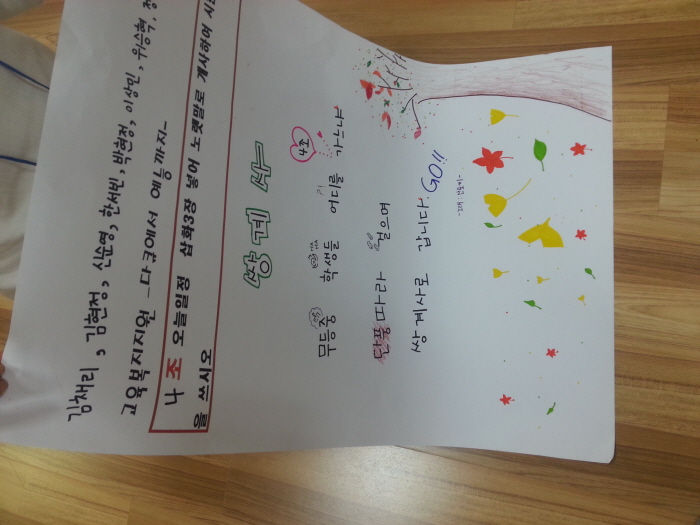 김채리, 김현정, 신순영, 한서빈, 박현정, 이상민, 위승혁,
교육복지지원 -다큐에서 예능까지-
나 조 오늘일정 삽화3장 넣어 노랫말로 개사하여
을 쓰시오
쌍계사
4조
무등중 학생들 어디를 가는가
단풍따라 걸으며
쌍계사로 갑니다 GO!!